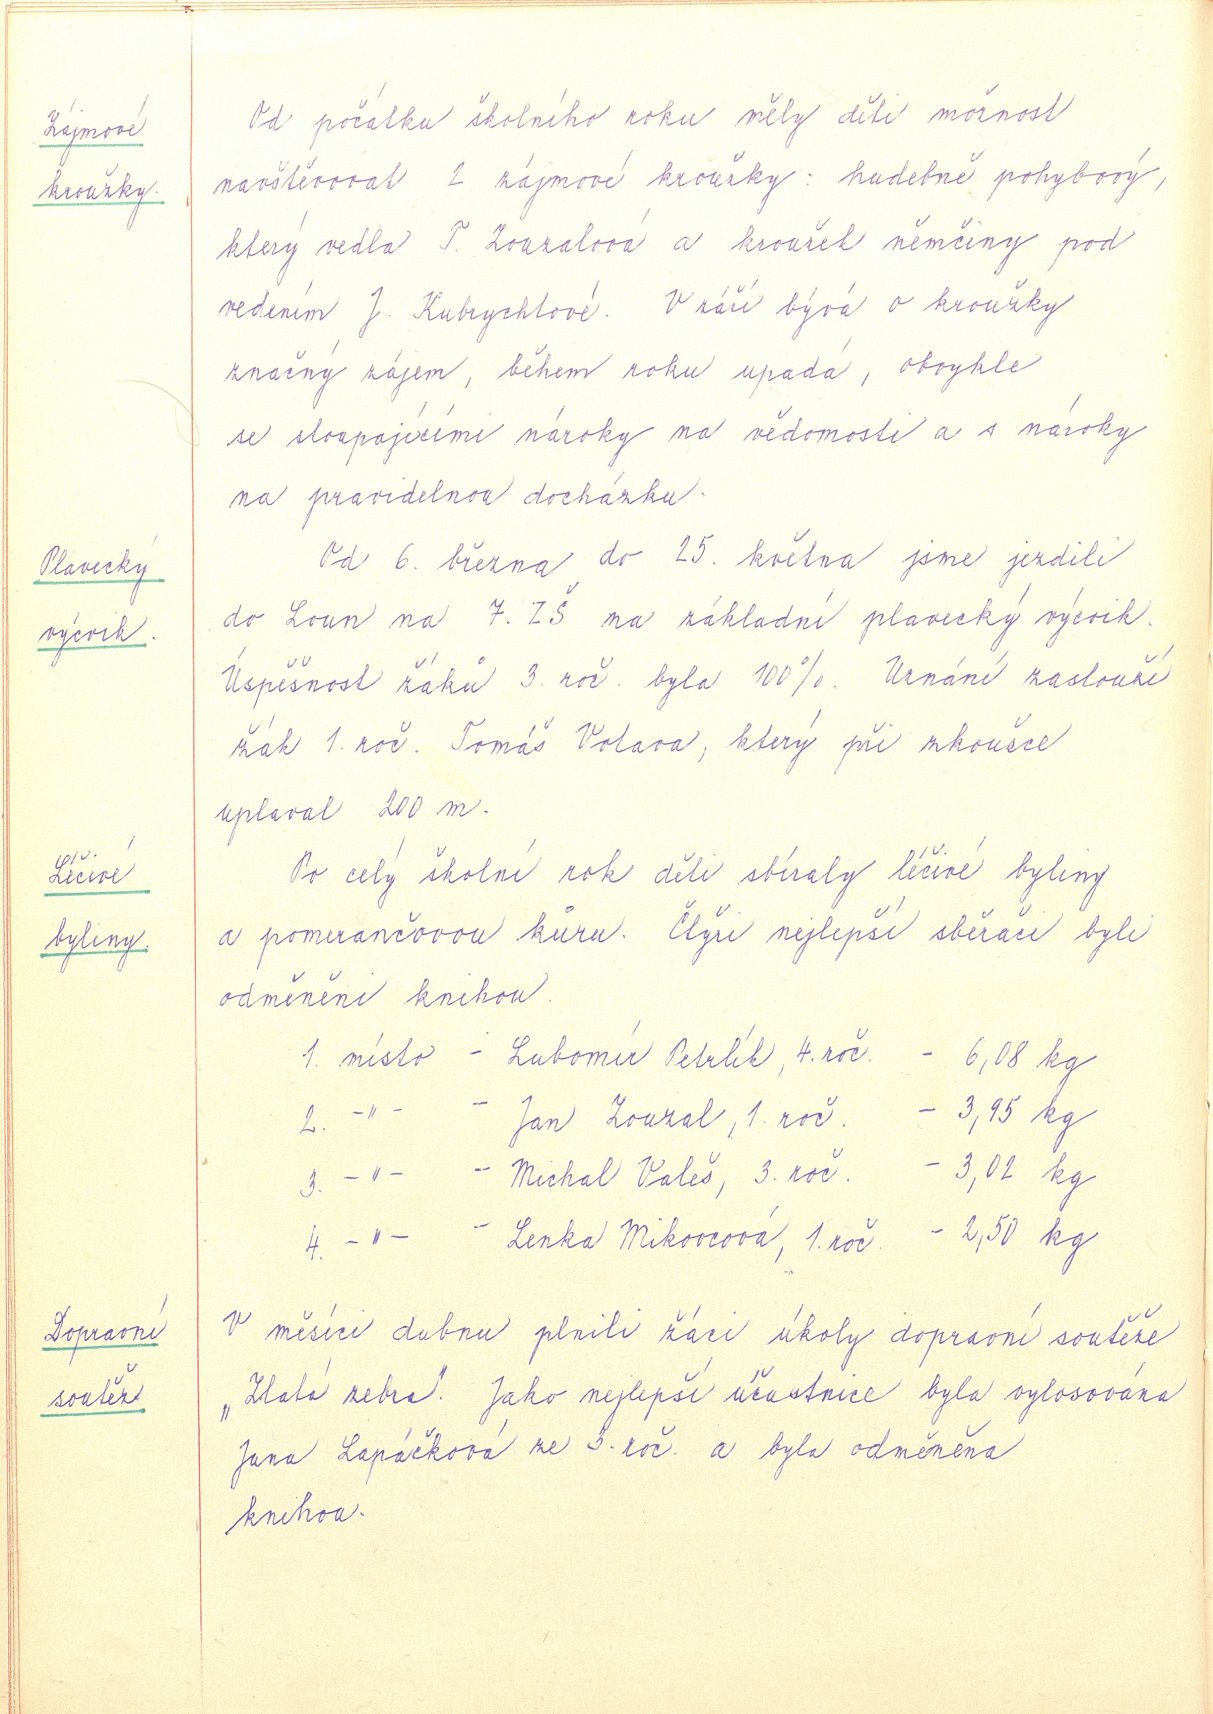 Zájmové
kroužky.
Od počátku školního roku měly děti možnost
navštěvovat 2 zájmové kroužky: hudebně pohybový,
který vedla T. Zouzalová a kroužek němčiny pod
vedením J. Kubrychtové. V září bývá o kroužky
značný zájem, během roku upadá, obvykle
se stoupajícími nároky na vědomosti a s nároky
na pravidelnou docházku.
Plavecký
výcvik.
Od 6. března do 25. května jsme jezdili
do Loun na 7. ZŠ na základní plavecký výcvik.
Úspěšnost žáků 3. roč. byla 100%. Uznání zaslouží
žák 1. roč. Tomáš Votava, který při zkoušce
uplaval 200 m.
Léčivé
byliny.
Po celý školní rok děti sbíraly léčivé byliny
a pomerančovou kůru. Čtyři nejlepší sběrači byli
odměněni knihou.
1. místo - Lubomír Petrlík, 4. roč. - 6,08 kg
2. -"- - Jan Zouzal, 1. roč. - 3,95 kg
3. -"- - Michal Valeš, 3. roč. - 3,02 kg
4. -"- - Lenka Mikovcová, 1. roč. - 2,50 kg
Dopravní
soutěž
V měsíci dubnu plnili žáci úkoly dopravní soutěže
„Zlatá zebra". Jako nejlepší účastnice byla vylosována
Jana Lapáčková ze 3. roč. a byla odměněna
knihou.